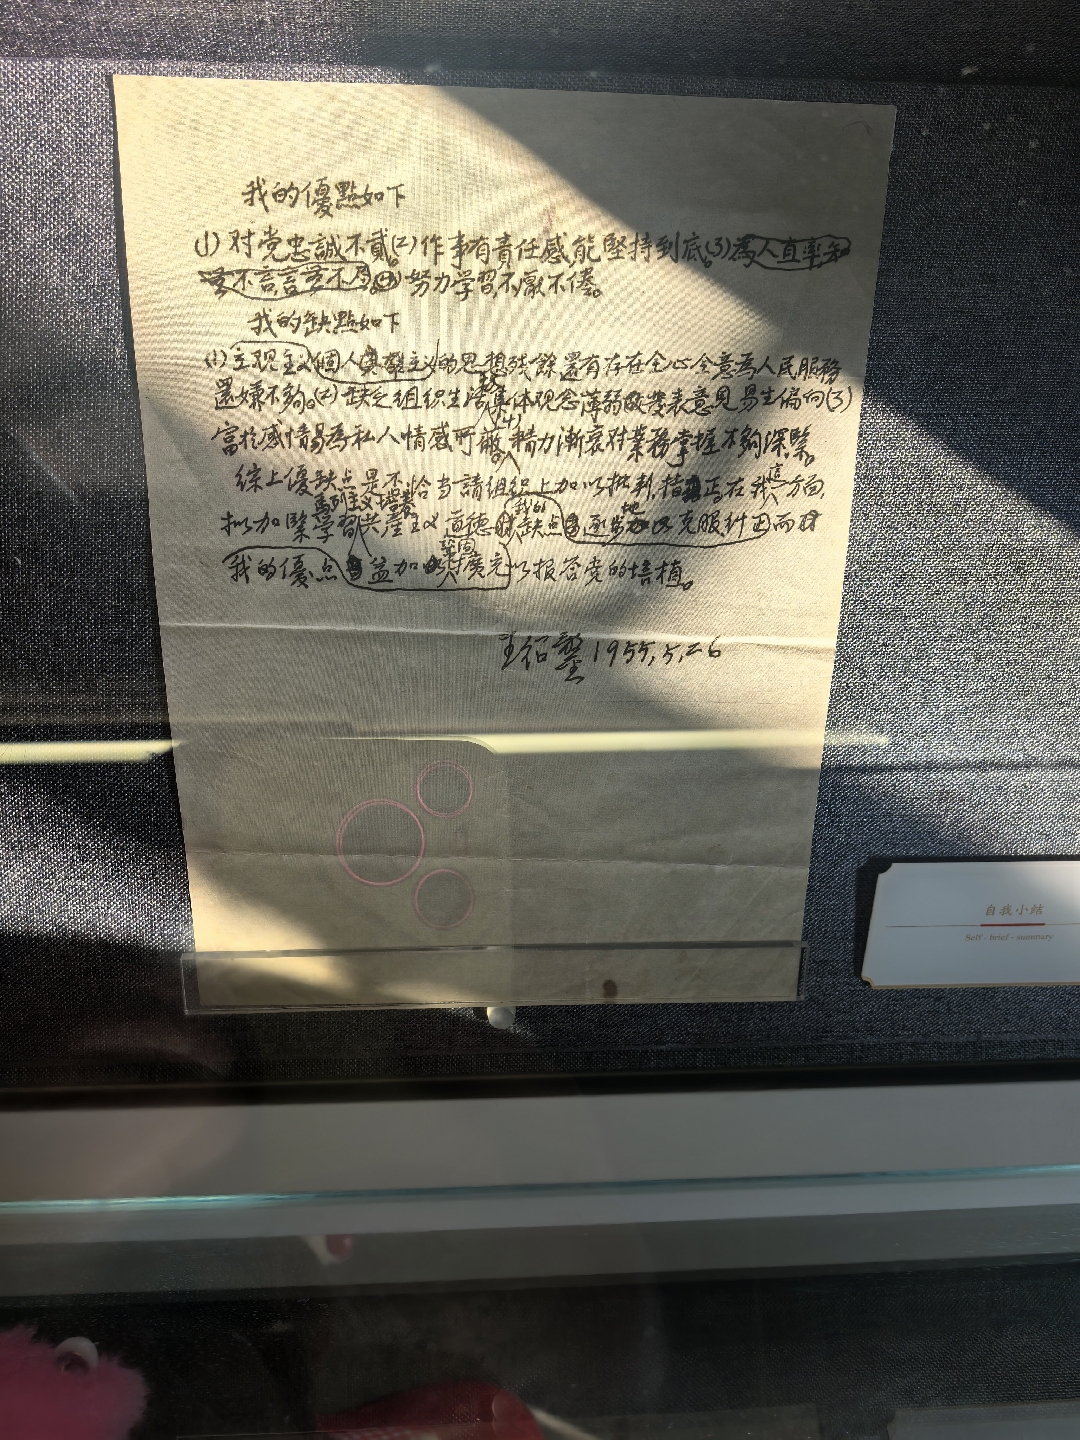 我的優點如下
(1)对党忠誠不貳。(2)作事有責任感能堅持到底。(3)為人直率,知
無不言,言無不尽。(4)努力学習,不厭不倦。
我的缺點如下
(1)主观主义個人英雄主义的思想残餘還有存在全心全意為人民服務
還嫌不夠。(2)缺乏組织生活集体观念薄弱故發表意見易生偏向(3)
富於感情易為私人情感所蔽(4)精力漸衰对業務掌握不夠深緊。
綜上優缺点是不恰当請組织上加以批判,指正在我這一方面,
拟加緊学習馬列主义理論共產主义道德 我的缺点逐步地克服糾正而
我的優点益加以廣充以报答党的培植。
王紹鏊1955,5,26
自我小结
Self - brief - summary